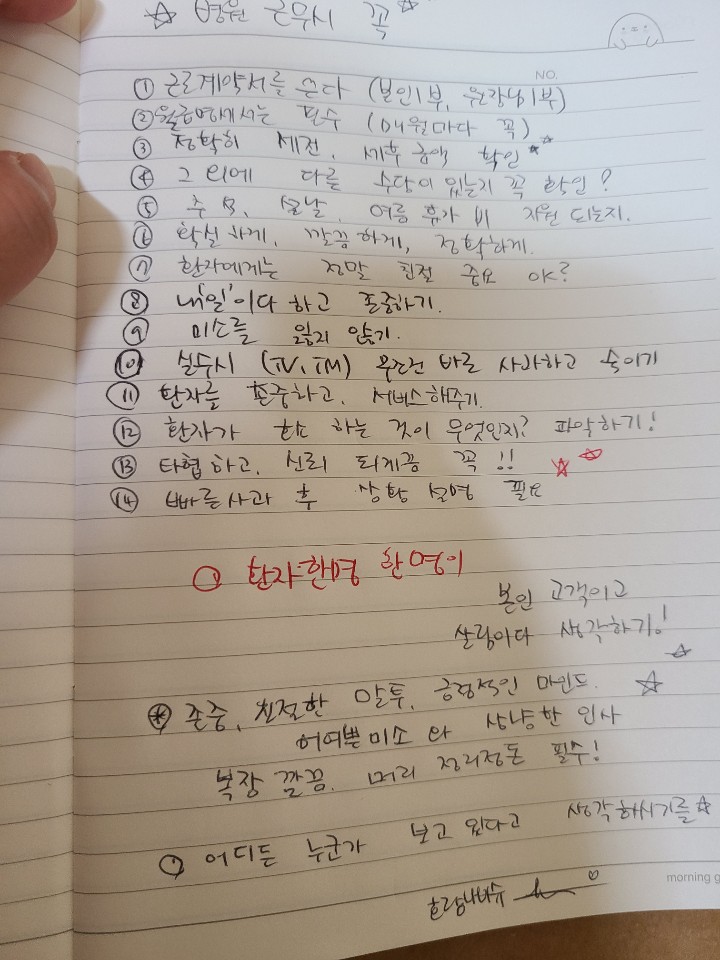 ☆ 병원 근무시 꼭 ☆
NO.
① 근로계약서를 쓴다 (본인1부, 원장님1부)
② 월급명세서는 필수 (매월마다 꼭)
③ 정확히 세전, 세후 금액 확인 ☆☆
④ 그 외에 다른 수당이 있는지 꼭 확인?
⑤ 추석, 설날, 여름 휴가 비 지원 되는지.
⑥ 확실하게, 깔끔하게, 정확하게.
⑦ 환자에게는 정말 친절 중요 ok?
⑧ 내'일'이다 하고 존중하기.
⑨ 미소를 잃지 않기.
⑩ 실수시 (TV, TM) 무조건 바로 사과하고 숙이기
⑪ 환자를 존중하고, 서비스해주기.
⑫ 환자가 하는 것이 무엇인지? 파악하기!
⑬ 타협하고, 신뢰 되게끔 꼭!! ☆☆
⑭ 빠른사과 후 상황 설명 필요
○ 환자한명 한명이
본인 고객이고
살림이다 생각하기! ☆
⊛ 존중, 친절한 말투, 긍정적인 마인드. ☆
어여쁜미소 와 상냥한 인사
복장 깔끔. 머리 정리정돈 필수!
○ 어디든 누군가 보고 있다고 생각하시기를☆
morning g